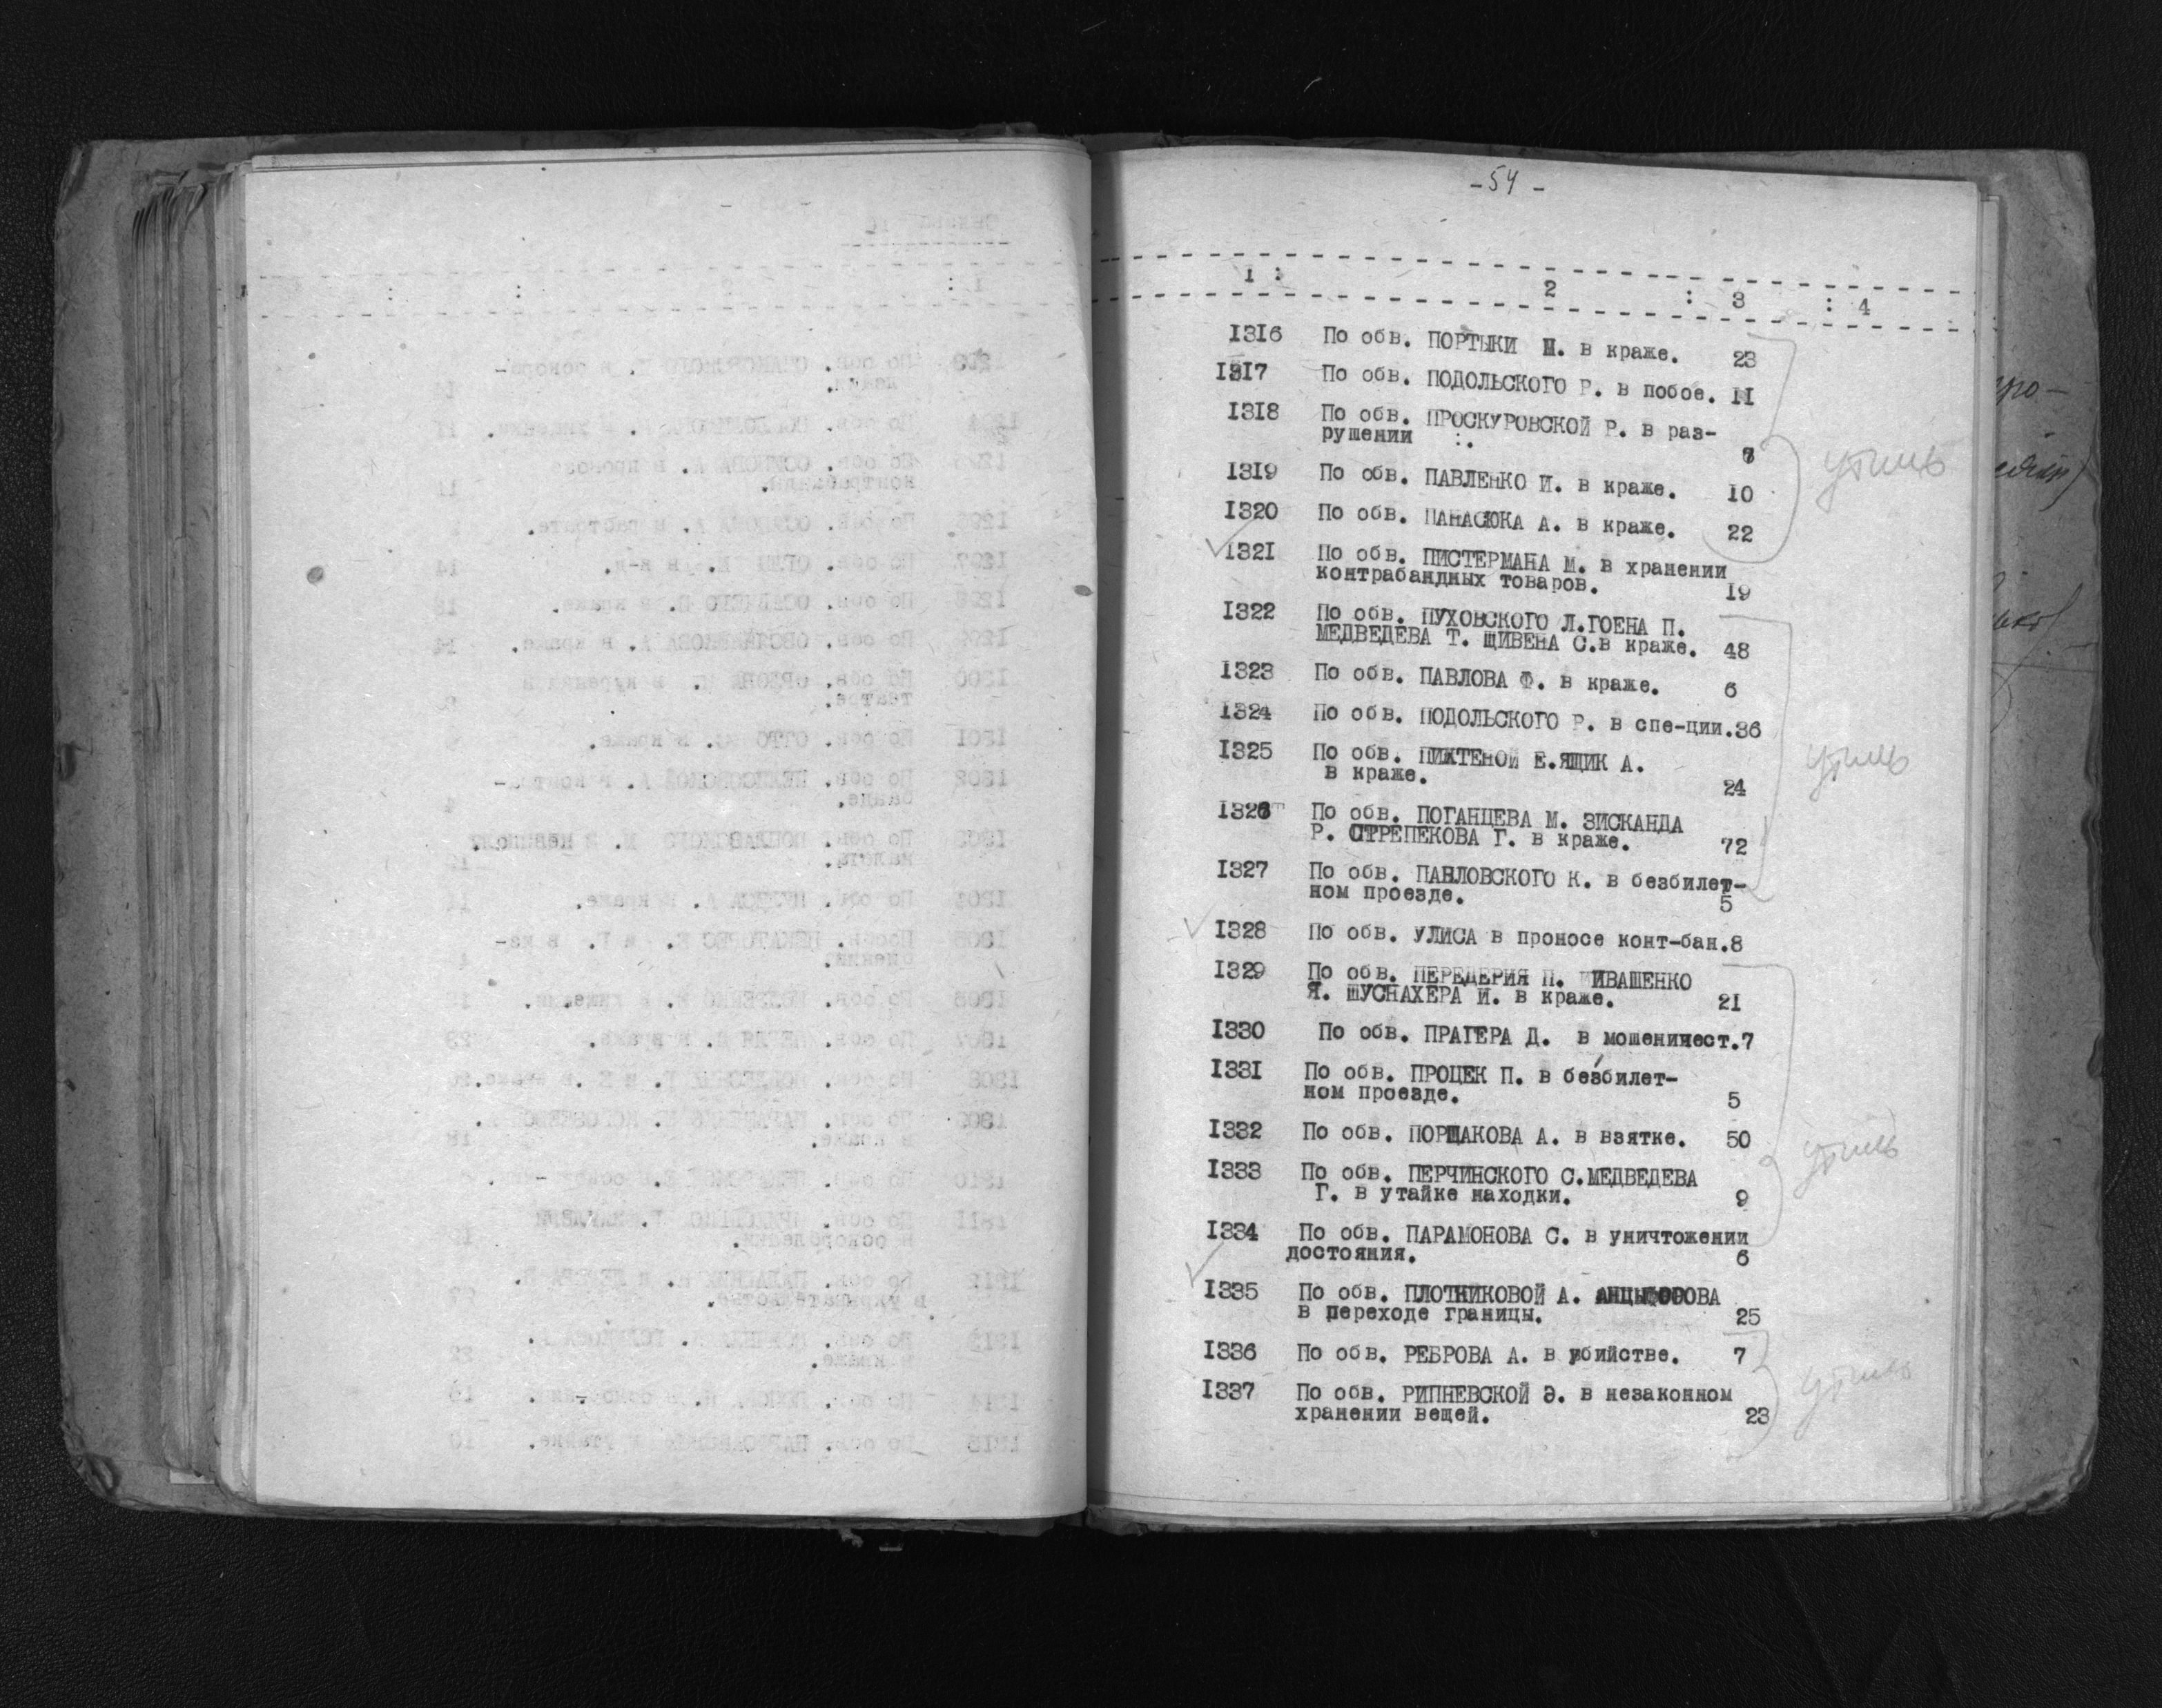 - 54 -
1 : 2 : 3 : 4
1316 По обв. ПОРТЫКИ И. в краже. 23
1317 По обв. ПОДОЛЬСКОГО Р. в побое. 11
1318 По обв. ПРОСКУРОВСКОЙ Р. в раз-
рушении :. 7
1319 По обв. ПАВЛЕНКО И. в краже. 10
1320 По обв. ПАНАСЮКА А. в краже. 22
утиль
1321 По обв. ПИСТЕРМАНА М. в хранении
контрабандных товаров. 19
1322 По обв. ПУХОВСКОГО Л.ГОЕНА П.
МЕДВЕДЕВА Т. ЩИВЕНА С.в краже. 48
1323 По обв. ПАВЛОВА Ф. в краже. 6
1324 По обв. ПОДОЛЬСКОГО Р. в спе-ции.36
1325 По обв. ПИЖТЕНОЙ Е.ЯЩИК А.
в краже. 24
утиль
1326 По обв. ПОГАНЦЕВА М. ЗИСКАНДА
Р. СТРЕПЕКОВА Г. в краже. 72
1327 По обв. ПАВЛОВСКОГО К. в безбилет-
ном проезде. 5
1328 По обв. УЛИСА в проносе конт-бан.8
1329 По обв. ПЕРЕДЕРИЯ П. ИВАШЕНКО
Я. ШУСНАХЕРА И. в краже. 21
1330 По обв. ПРАГЕРА Д. в мошеничест.7
1331 По обв. ПРОЦЕК П. в безбилет-
ном проезде. 5
1332 По обв. ПОРЩАКОВА А. в взятке. 50
утиль
1333 По обв. ПЕРЧИНСКОГО С.МЕДВЕДЕВА
Г. в утайке находки. 9
1334 По обв. ПАРАМОНОВА С. в уничтожении
достояния. 6
1335 По обв. ПЛОТНИКОВОЙ А. АНЦЫФОРОВА
в переходе границы. 25
1336 По обв. РЕБРОВА А. в убийстве. 7
1337 По обв. РИПНЕВСКОЙ Э. в незаконном
хранении вещей. 23
утиль